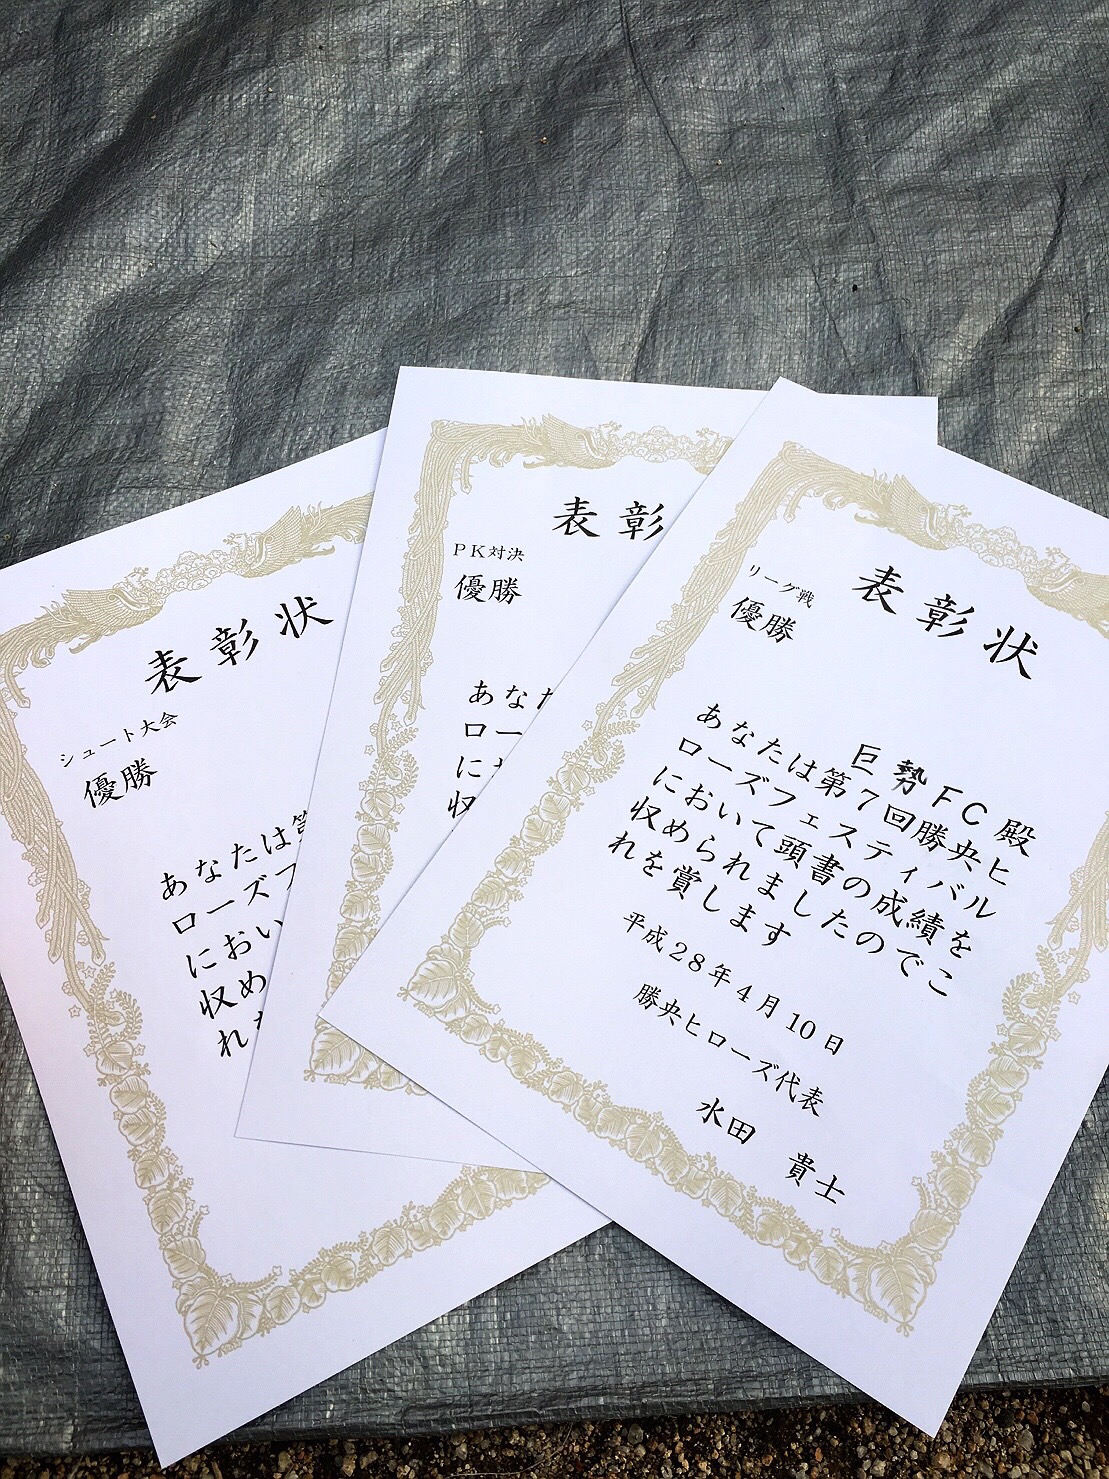 表彰状
シュート大会
優勝
あなたは
ローズフ
におい
収め
れ
表彰
PK対決
優勝
あな
ロー
に
収
表彰状
リーグ戦
優勝
巨勢FC殿
あなたは第7回勝央ヒ
ローズフェスティバル
において頭書の成績を
収められましたのでこ
れを賞します
平成28年4月10日
勝央ヒローズ代表
水田 貴士